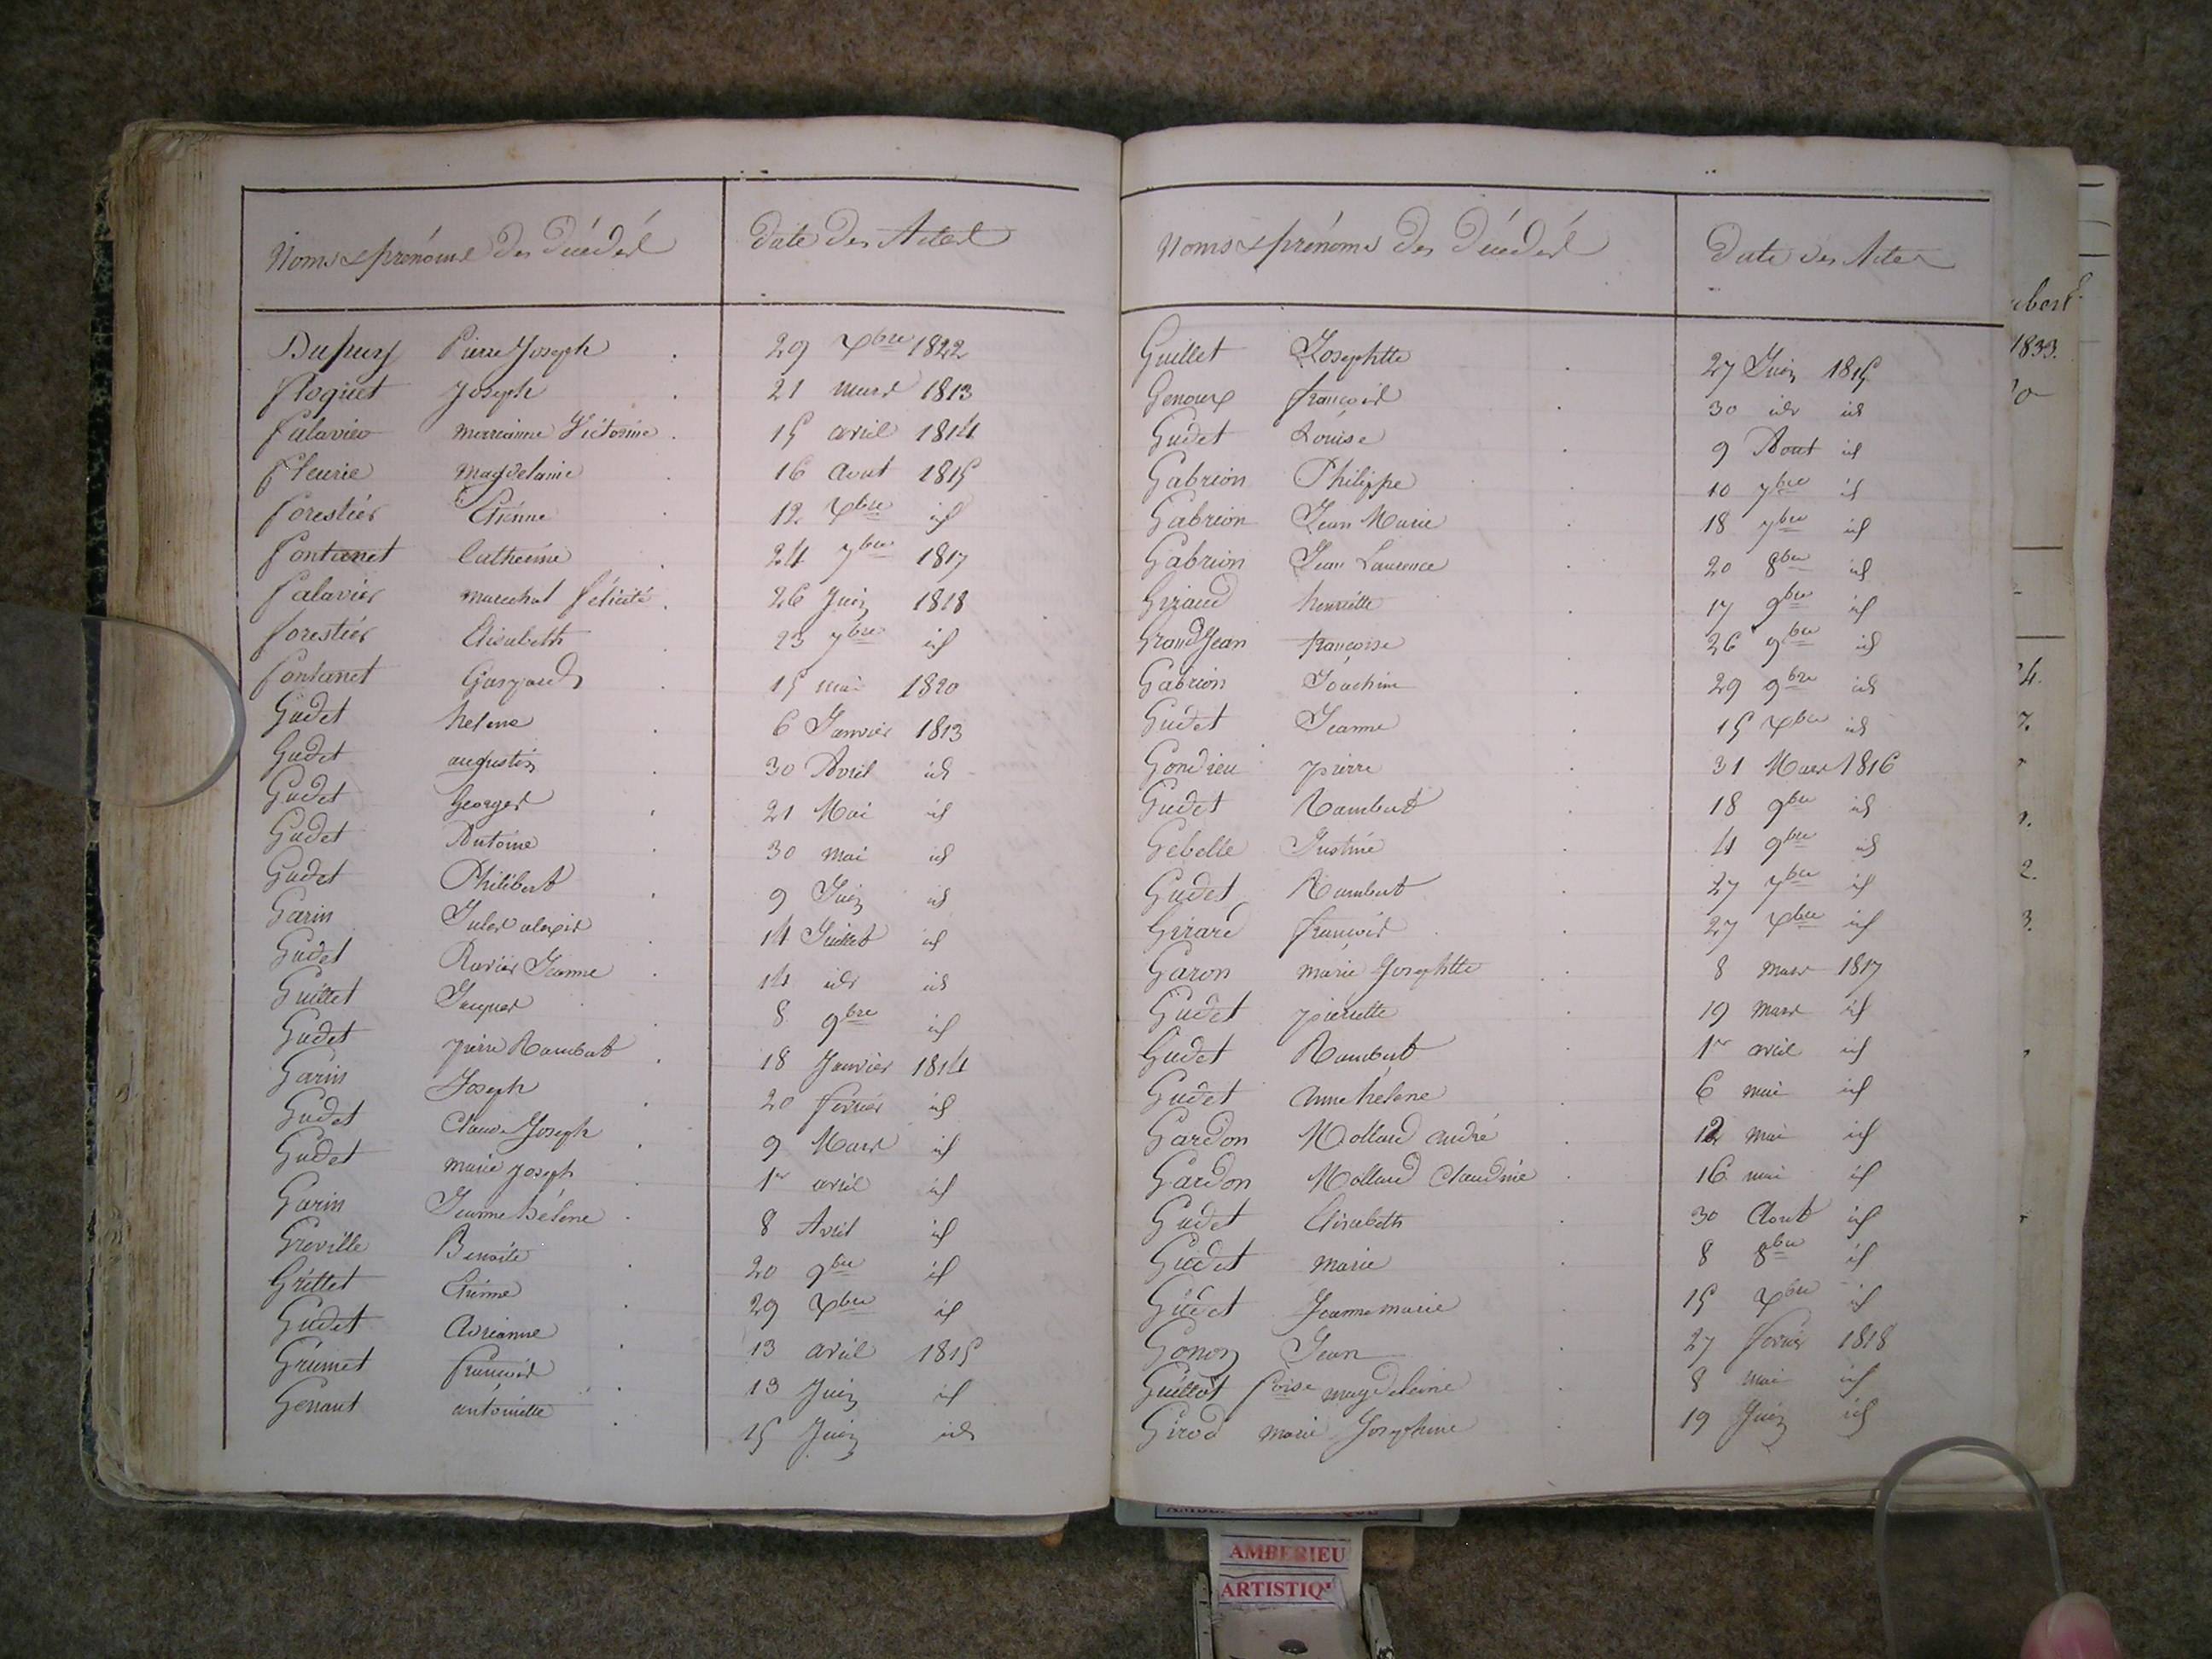 Noms & prénoms des Décédés Date des Actes
Dupuy Pierre Joseph 29 Xbre 1822
floquet Joseph 21 mars 1813
falavier marianne Victorine 15 avril 1814
fleurie Magdelaine 16 aout 1815
forestier Etienne 12 Xbre id
fontanet Catherine 24 7bre 1817
falavier marechal félicité 26 Juin 1818
forestier Elisabeth 23 7bre id
fontanet Gaspard 15 mai 1820
Gudet helene 6 Janvier 1813
Gudet augustin 30 Avril id
Gudet Georges 21 Mai id
Gudet Antoine 30 mai id
Gudet Philibert 9 Juin id
Garin Jules alexis 14 Juillet id
Gudet Ravier Jeanne 14 id id
Guillet Jacques 8 9bre id
Gudet pierre Rambert 18 Janvier 1814
Garin Joseph 20 fevrier id
Gudet Claude Joseph 9 Mars id
Gudet marie Joseph 1er avril id
Garin Jeanne hélene 8 Avril id
Greville Benoite 20 9bre id
Grillet Etienne 29 Xbre id
Gudet Adrianne 13 avril 1815
Grumet françois 13 Juin id
Genaut antoinette 15 Juin id
Noms & prénoms des Décédés Date des Actes
Guillet Josephtte 27 Juin 1815
Genoux françois 30 id id
Gudet Louise 9 Aout id
Gabrion Philippe 10 7bre id
Gabrion Jean Marie 18 7bre id
Gabrion Jean Laurence 20 8bre id
Giraud henriette 17 9bre id
GrandJean françoise 26 9bre id
Gabrion Joachim 29 9bre id
Gudet Jeanne 15 Xbre id
Gondieu pierre 31 Mars 1816
Gudet Rambert 18 9bre id
Gebelle Justine 4 9bre id
Gudet Rambert 27 7bre id
Girard françois 27 Xbre id
Garon marie Josephtte 8 mars 1817
Gudet pierrette 19 mars id
Gudet Rambert 1er avril id
Gudet Anne hélene 6 mai id
Gardon Mollard andré 12 mai id
Gardon Mollard Claudine 16 mai id
Gudet Elisabeth 30 Aout id
Gudet Marie 8 8bre id
Gudet Jeanne marie 15 Xbre id
Gonon Jean 27 fevrier 1818
Guillot foise magdeleine 8 mai id
Girod marie Josephine 19 Juin id
1833.
AMBERIEU